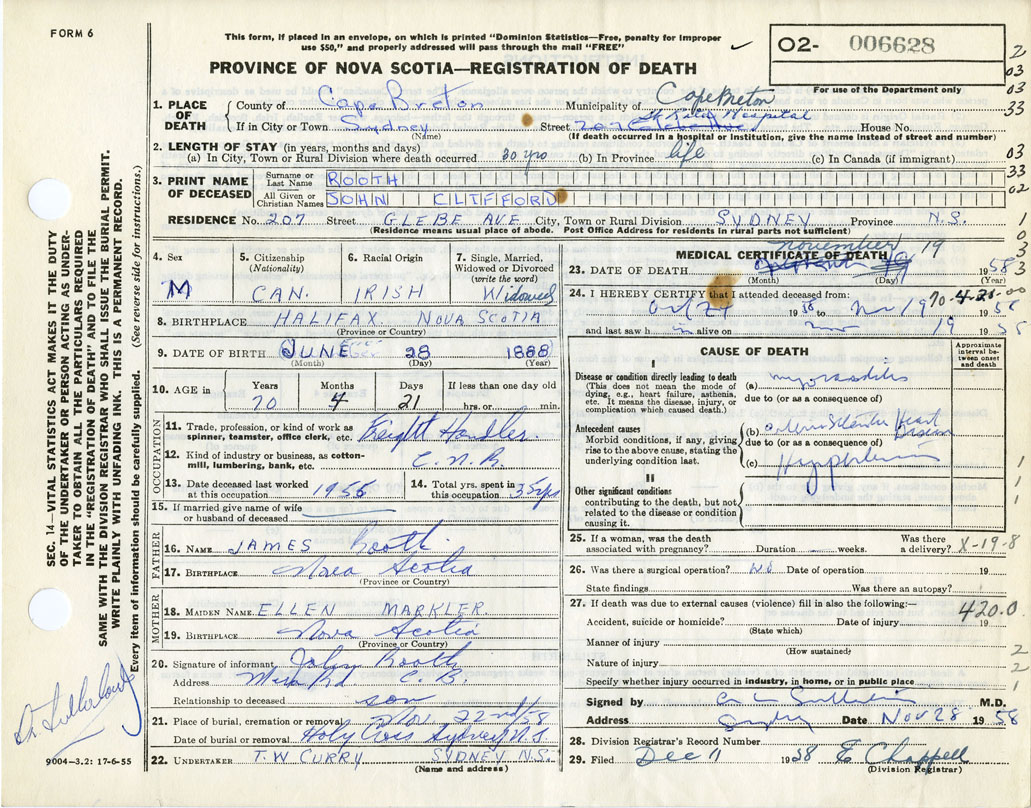 FORM 6
This form, if placed in an envelope, on which is printed "Dominion Statistics—Free, penalty for improper
use $50," and properly addressed will pass through the mail "FREE"
✓
O2- 006628
PROVINCE OF NOVA SCOTIA—REGISTRATION OF DEATH
For use of the Department only
1. PLACE OF DEATH
County of Cape Breton Municipality of Cape Breton
If in City or Town Sydney Street Hospital House No.
(Name) (If death occurred in a hospital or institution, give the name instead of street and number)
2. LENGTH OF STAY (in years, months and days)
(a) In City, Town or Rural Division where death occurred 30 yrs (b) In Province life (c) In Canada (if immigrant)
3. PRINT NAME OF DECEASED
Surname or Last Name ROOTH
All Given or Christian Names JOHN CLIFFORD
RESIDENCE No. 207 Street GLEBE AVE City, Town or Rural Division SYDNEY Province N.S.
(Residence means usual place of abode. Post Office Address for residents in rural parts not sufficient)
4. Sex M
5. Citizenship (Nationality) CAN.
6. Racial Origin IRISH
7. Single, Married, Widowed or Divorced (write the word) Widowed
8. BIRTHPLACE HALIFAX NOVA SCOTIA
(Province or Country)
9. DATE OF BIRTH JUNE 28 1888
(Month) (Day) (Year)
10. AGE in Years Months Days If less than one day old
70 4 21 hrs. or min.
OCCUPATION
11. Trade, profession, or kind of work as spinner, teamster, office clerk, etc. Freight Handler.
12. Kind of industry or business, as cotton-mill, lumbering, bank, etc. C.N.R.
13. Date deceased last worked at this occupation 1955
14. Total yrs. spent in this occupation 35 yrs
15. If married give name of wife or husband of deceased
FATHER
16. NAME JAMES Booth.
17. BIRTHPLACE Nova Scotia
(Province or Country)
MOTHER
18. MAIDEN NAME ELLEN MARKLER
19. BIRTHPLACE Nova Scotia
(Province or Country)
20. Signature of informant John Booth
Address Mira Rd C.B.
Relationship to deceased son
21. Place of burial, cremation or removal Nov. 22nd/58
Date of burial or removal Holy Cross Sydney N.S.
22. UNDERTAKER T.W CURRY SYDNEY N.S.
(Name and address)
MEDICAL CERTIFICATE OF DEATH
23. DATE OF DEATH November 19 1958
(Month) (Day) (Year)
24. I HEREBY CERTIFY that I attended deceased from:
Oct 27 1958 to Nov 19 1958
70-4-21-00
and last saw h im alive on Nov 19 1958
CAUSE OF DEATH
Approximate interval between onset and death
I
Disease or condition directly leading to death
(This does not mean the mode of dying, e.g., heart failure, asthenia, etc. It means the disease, injury, or complication which caused death.)
(a) myocarditis
due to (or as a consequence of)
Antecedent causes
Morbid conditions, if any, giving rise to the above cause, stating the underlying condition last.
(b) Heart Disease
due to (or as a consequence of)
(c)
II
Other significant conditions
contributing to the death, but not related to the disease or condition causing it.
25. If a woman, was the death associated with pregnancy? Duration weeks. Was there a delivery? X-19-8
26. Was there a surgical operation? No Date of operation 19
State findings Was there an autopsy?
27. If death was due to external causes (violence) fill in also the following:—
420.0
Accident, suicide or homicide? Date of injury 19
(State which)
Manner of injury
(How sustained)
Nature of injury
Specify whether injury occurred in industry, in home, or in public place
Signed by M.D.
Address Sydney Date Nov 28 1958
28. Division Registrar's Record Number
29. Filed Dec 11 1958 E Chappell
(Division Registrar)
2
03
03
33
03
33
02
1
0
3
3
1
1
1
2
2
1
SEC. 14—VITAL STATISTICS ACT MAKES IT THE DUTY
OF THE UNDERTAKER OR PERSON ACTING AS UNDER-
TAKER TO OBTAIN ALL THE PARTICULARS REQUIRED
IN THE "REGISTRATION OF DEATH" AND TO FILE THE
SAME WITH THE DIVISION REGISTRAR WHO SHALL ISSUE THE BURIAL PERMIT.
WRITE PLAINLY WITH UNFADING INK. THIS IS A PERMANENT RECORD.
Every item of information should be carefully supplied. (See reverse side for instructions.)
9004—3.2: 17-6-55